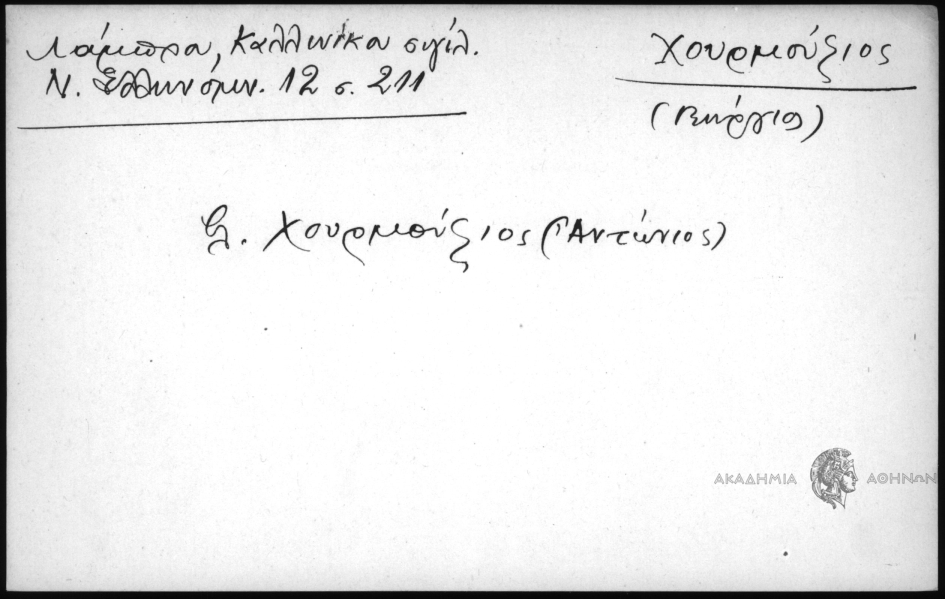 Λάμπρου, Καλλινίκου σιγίλ.
Ν. Ἑλληνομν. 12 σ. 211
Χουρμούζιος
(Γεώργιος)
βλ. Χουρμούζιος (Ἀντώνιος)
ΑΚΑΔΗΜΙΑ ΑΘΗΝΩΝ